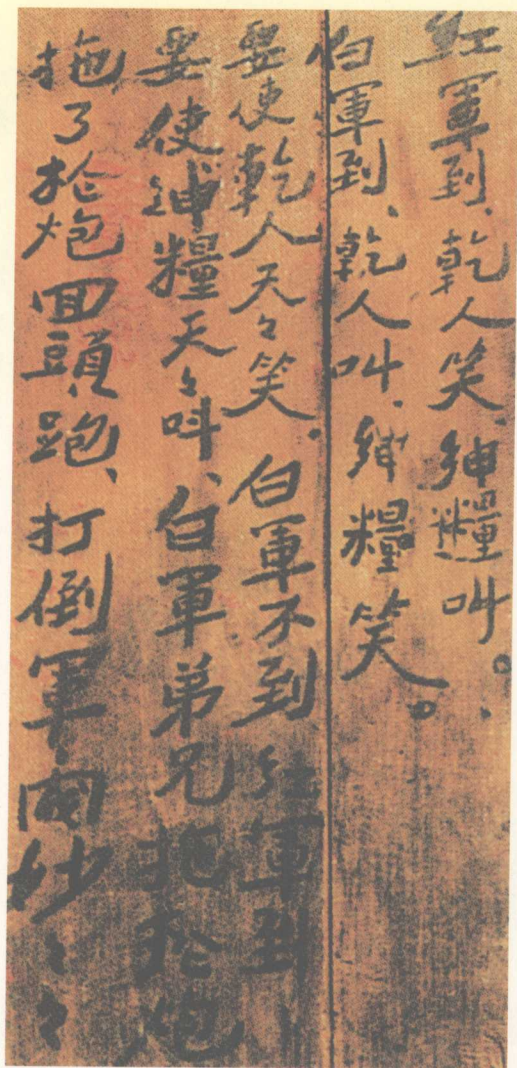 紅軍到、乾人笑、紳糧叫。
白軍到、乾人叫、紳糧笑。
要使乾人天々笑。白軍不到紅軍到
要使紳糧天々叫、白軍弟兄拖槍炮
拖了槍炮回頭跑、打倒軍閥妙々々